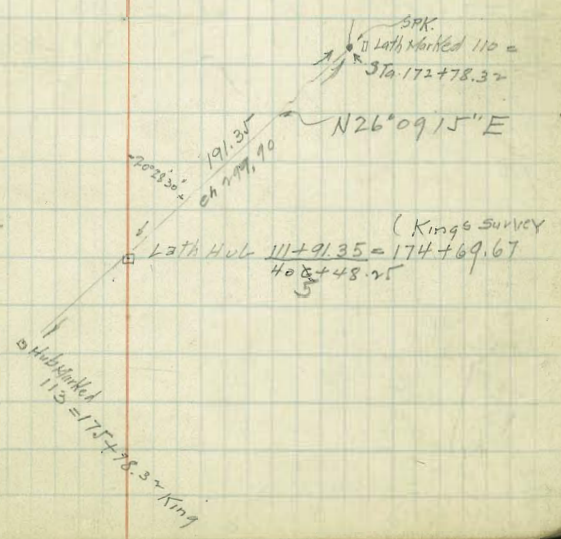 SPK.
Lath Marked 110 =
Sta. 172+78.32
N26°09'15"E
191.35
ch 299.90
20°28'30"±
(Kings Survey
Lath Hub 111+91.35 = 174+69.67
405+48.25
Hub Marked
113 = 175+78.32 King